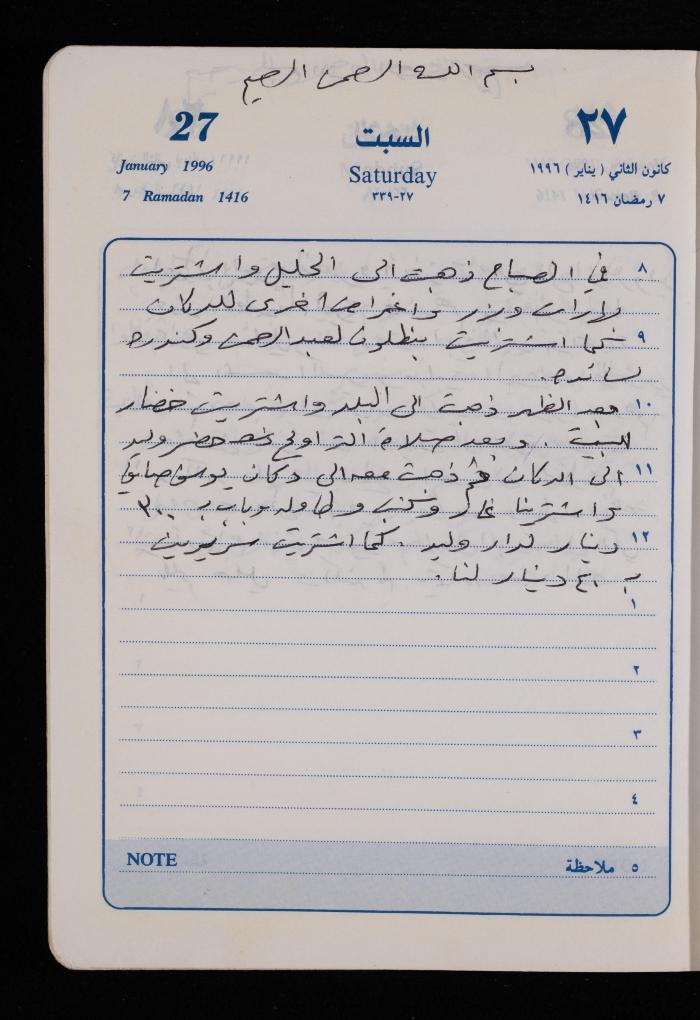 بسم الله الرحمن الرحيم
27 السبت ٢٧
January 1996 Saturday كانون الثاني ( يناير ) ١٩٩٦
7 Ramadan 1416 ٣٣٩-٢٧ ٧ رمضان ١٤١٦
٨ في الصباح ذهبت الى الخليل واشتريت
وزرر واغراض اخرى للدكان
٩ كما اشتريت بنطلون لعبد الرحمن وكندره
لسائده.
١٠ بعد الظهر ذهبت الى البلد واشتريت خضار
للبيت . وبعد صلاة التراويح حضر وليد
١١ الى الدكان ثم ذهبت معه الى دكان يوسف
واشترينا غاز وكنب وطاوله وباب بـ ٣٠٠
١٢ دينار لدار وليد . كما اشتريت سريرين
بـ ٤٠ دينار لنا .
١
٢
٣
٤
NOTE ٥ ملاحظة